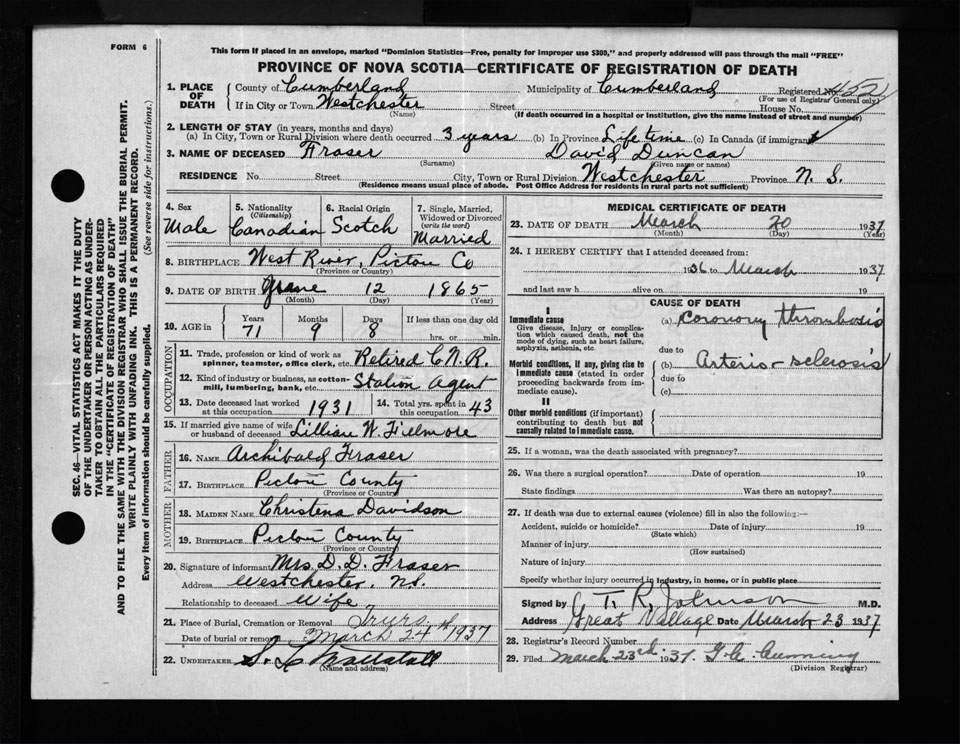 FORM 6
This form if placed in an envelope, marked "Dominion Statistics—Free, penalty for improper use $300," and properly addressed will pass through the mail "FREE"
PROVINCE OF NOVA SCOTIA—CERTIFICATE OF REGISTRATION OF DEATH
SEC. 46—VITAL STATISTICS ACT MAKES IT THE DUTY
OF THE UNDERTAKER OR PERSON ACTING AS UNDER-
TAKER TO OBTAIN ALL THE PARTICULARS REQUIRED
IN THE "CERTIFICATE OF REGISTRATION OF DEATH"
AND TO FILE THE SAME WITH THE DIVISION REGISTRAR WHO SHALL ISSUE THE BURIAL PERMIT.
WRITE PLAINLY WITH UNFADING INK. THIS IS A PERMANENT RECORD.
Every item of information should be carefully supplied. (See reverse side for instructions.)
1. PLACE OF DEATH County of Cumberland Municipality of Cumberland Registered No. 452
(For use of Registrar General only)
If in City or Town Westchester Street House No.
(Name) (If death occurred in a hospital or institution, give the name instead of street and number)
2. LENGTH OF STAY (in years, months and days)
(a) In City, Town or Rural Division where death occurred 3 years (b) In Province Lifetime (c) In Canada (if immigrant)
3. NAME OF DECEASED Fraser David Duncan
(Surname) (Given name or names)
RESIDENCE No. Street City, Town or Rural Division Westchester Province N. S.
(Residence means usual place of abode. Post Office Address for residents in rural parts not sufficient)
4. Sex 5. Nationality 6. Racial Origin 7. Single, Married,
(Citizenship) Widowed or Divorced
(write the word)
Male Canadian Scotch Married
8. BIRTHPLACE West River, Pictou Co
(Province or Country)
9. DATE OF BIRTH June 12 1865
(Month) (Day) (Year)
10. AGE in Years Months Days If less than one day old
71 9 8 hrs. or min.
OCCUPATION
11. Trade, profession or kind of work as
spinner, teamster, office clerk, etc. Retired C.N.R.
12. Kind of industry or business, as cotton-
mill, lumbering, bank, etc. Station Agent
13. Date deceased last worked
at this occupation 1931 14. Total yrs. spent in
this occupation 43
15. If married give name of wife
or husband of deceased Lillian W. Fillmore
FATHER
16. NAME Archibald Fraser
17. BIRTHPLACE Pictou County
(Province or Country)
MOTHER
18. MAIDEN NAME Christena Davidson
19. BIRTHPLACE Pictou County
(Province or Country)
20. Signature of informant Mrs. D. D. Fraser
Address Westchester, N.S.
Relationship to deceased Wife
21. Place of Burial, Cremation or Removal
Date of burial or removal March 24th 1937
22. UNDERTAKER
(Name and address)
MEDICAL CERTIFICATE OF DEATH
23. DATE OF DEATH March 20 1937
(Month) (Day) (Year)
24. I HEREBY CERTIFY that I attended deceased from:
1936 to March 1937
and last saw h alive on 19
CAUSE OF DEATH
I
Immediate cause (a) Coronory thrombosis
Give disease, injury or complica-
tion which caused death, not the
mode of dying, such as heart failure,
asphyxia, asthenia, etc.
due to
Morbid conditions, if any, giving rise to
immediate cause (stated in order
proceeding backwards from im-
mediate cause).
(b) Arterio-sclerosis
due to
(c)
II
Other morbid conditions (if important)
contributing to death but not
causally related to immediate cause.
25. If a woman, was the death associated with pregnancy?
26. Was there a surgical operation? Date of operation 19
State findings Was there an autopsy?
27. If death was due to external causes (violence) fill in also the following:—
Accident, suicide or homicide? Date of injury 19
(State which)
Manner of injury
(How sustained)
Nature of injury
Specify whether injury occurred in industry, in home, or in public place
Signed by T. R. Johnson M.D.
Address Great Village Date March 23 1937
28. Registrar's Record Number
29. Filed March 23rd 1937 Cumming
(Division Registrar)